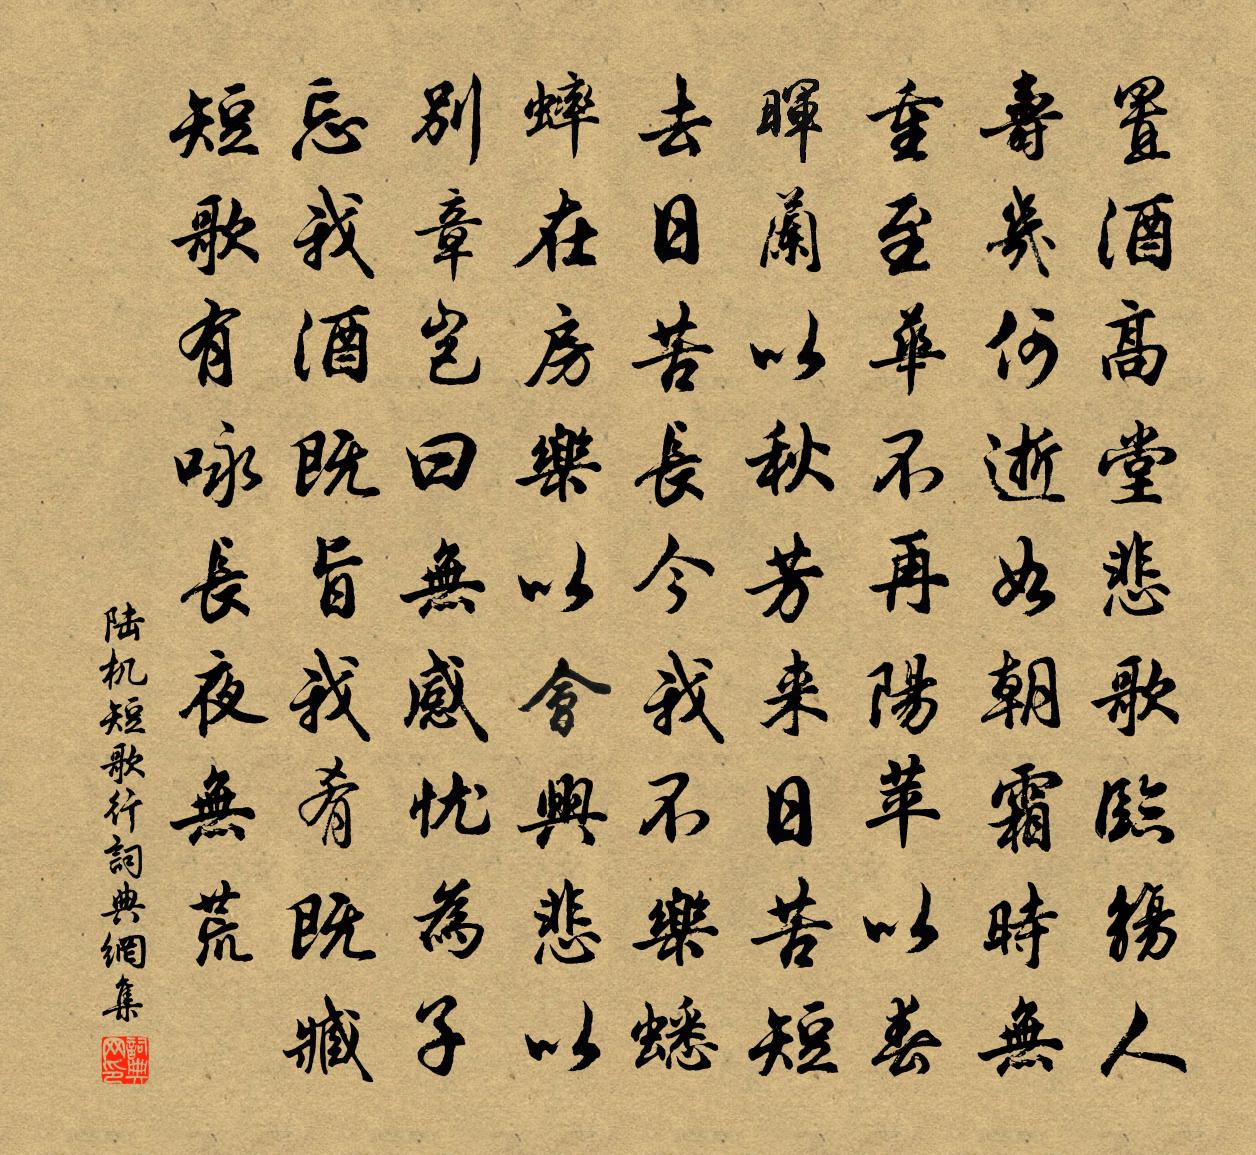 置酒高堂悲歌臨觴人
壽幾何逝如朝霜時無
重至華不再陽苹以春
暉蘭以秋芳来日苦短
去日苦長今我不樂蟋
蟀在房樂以會興悲以
別章豈曰無感忧為子
忘我酒既旨我肴既臧
短歌有咏長夜無荒
陆机短歌行詞典網集
詞典网印